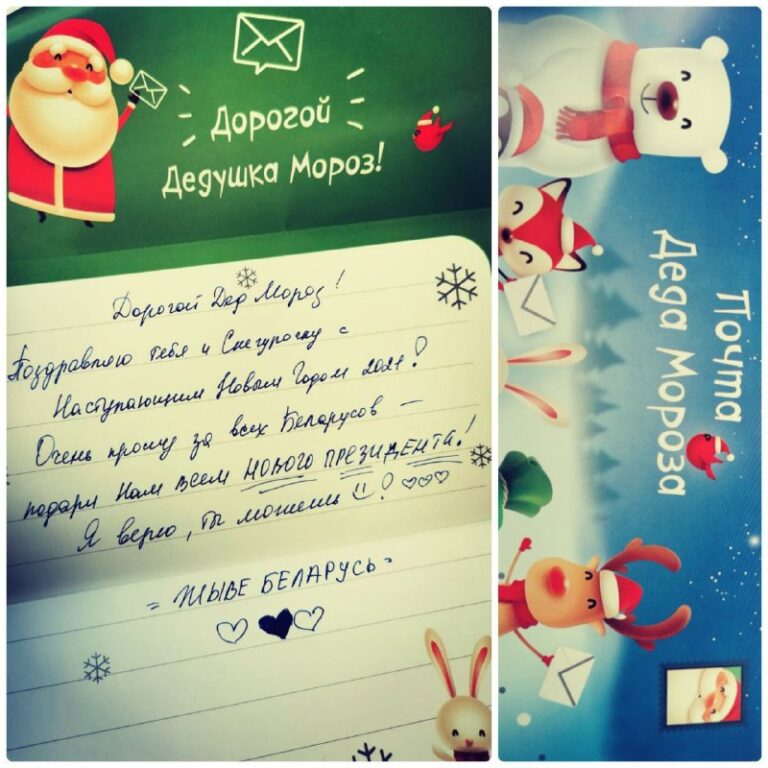 Дорогой
Дедушка Мороз!
Дорогой Дед Мороз!
Поздравляю тебя и Снегурочку с
Наступающим Новым Годом 2021!
Очень прошу за всех Беларусов –
подари нам всем НОВОГО ПРЕЗИДЕНТА!
Я верю, ты можешь!
= ЖЫВЕ БЕЛАРУСЬ =
Почта
Деда Мороза